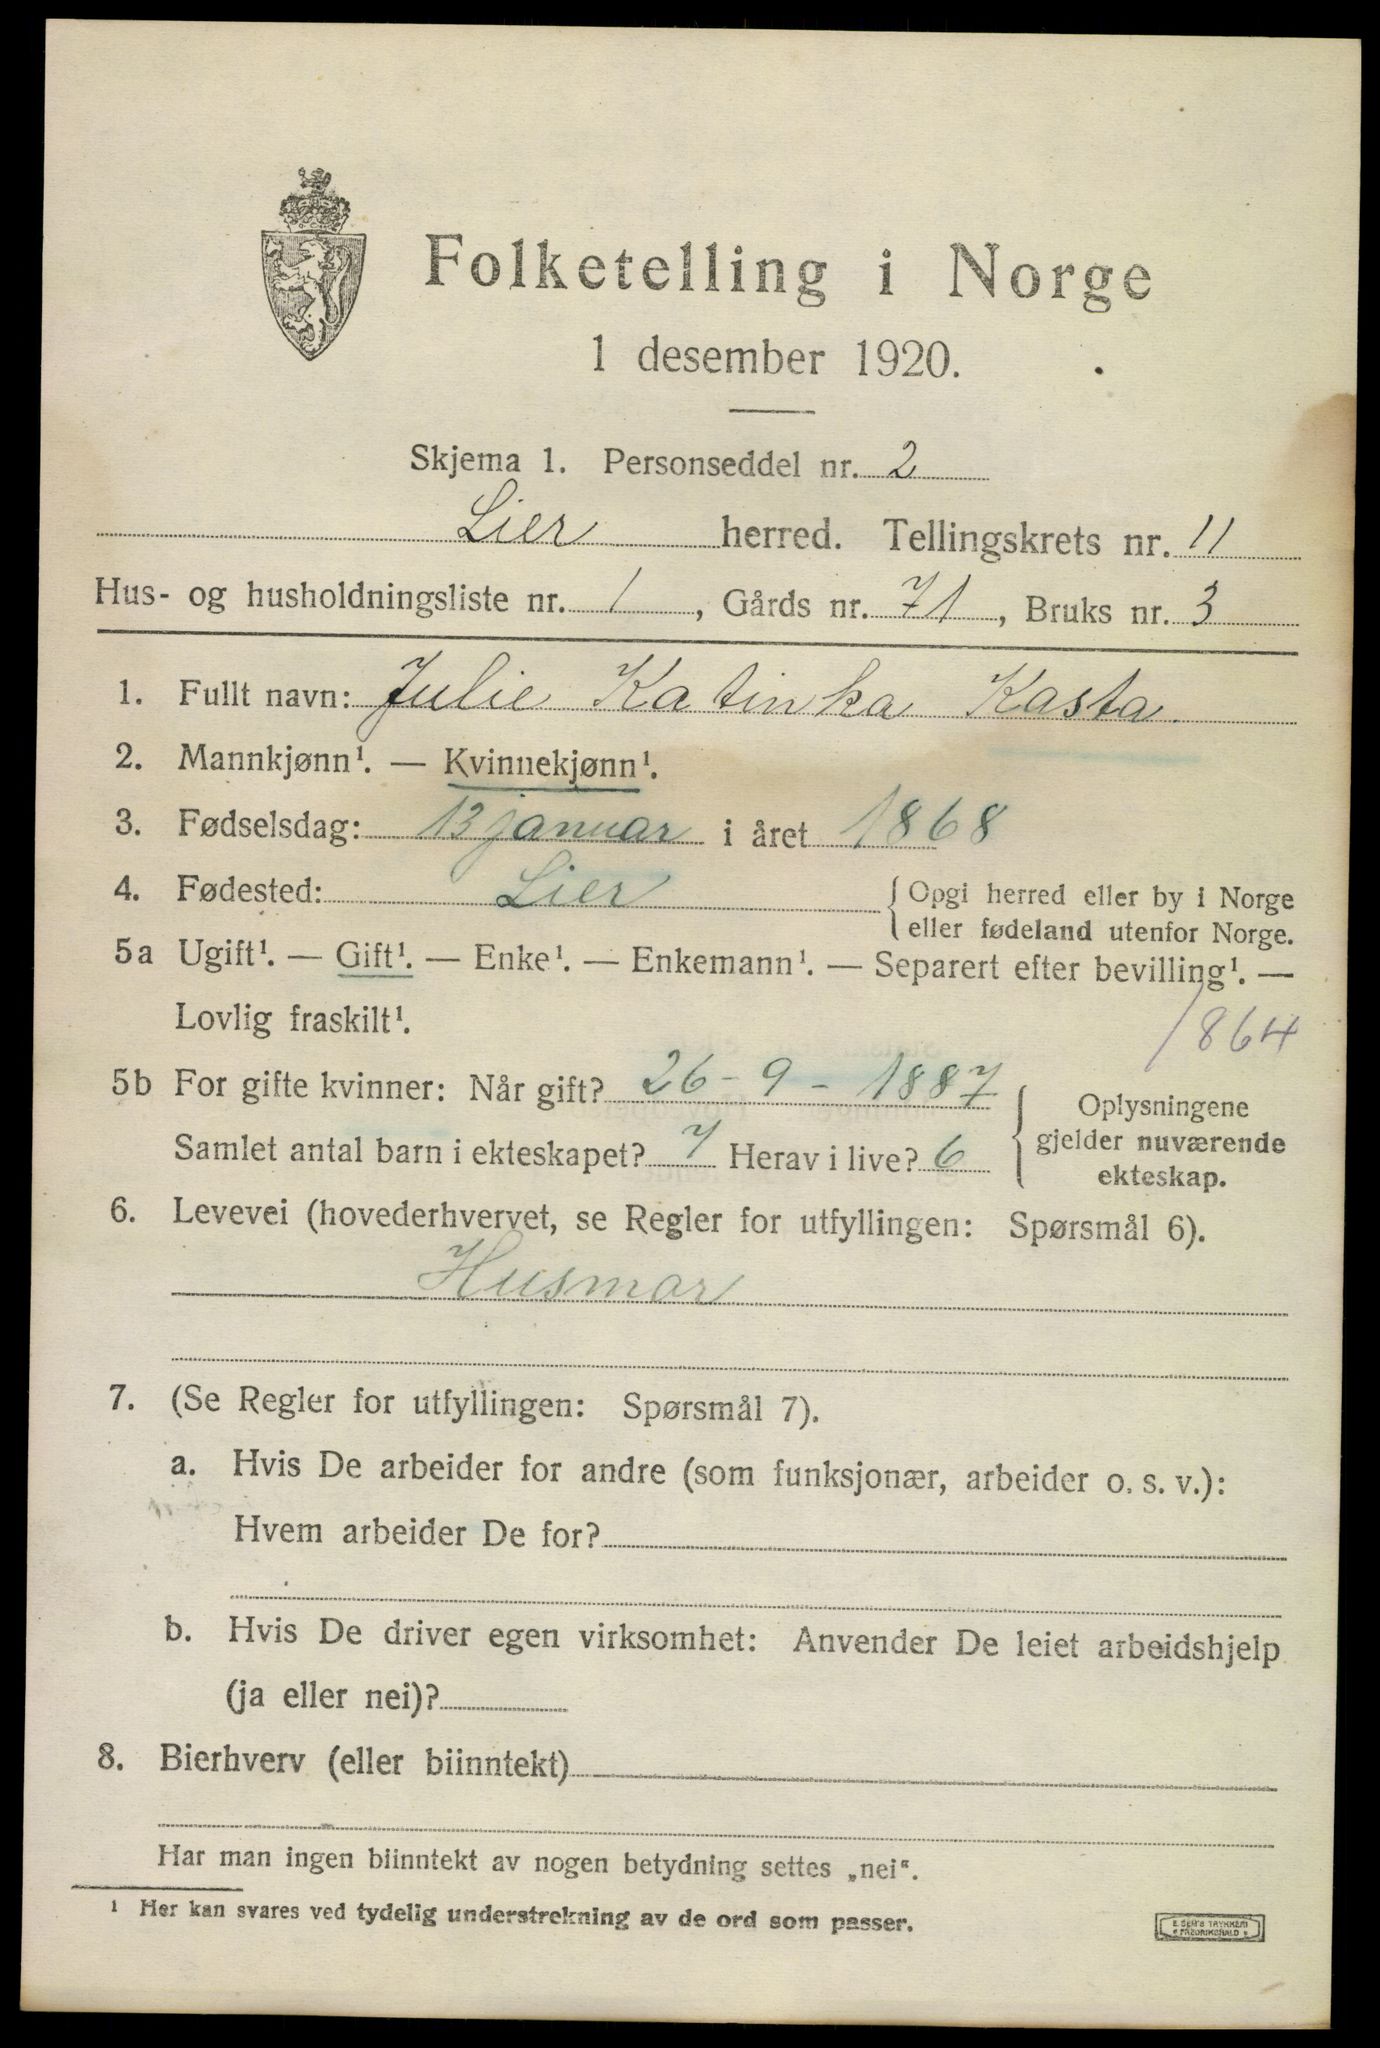 Folketelling i Norge
1 desember 1920.
Skjema 1. Personseddel nr. 2
Lier herred. Tellingskrets nr. 11
Hus- og husholdningsliste nr. 1, Gårds nr. 71, Bruks nr. 3
1. Fullt navn: Julie Katinka Kasta
2. Mannkjønn¹. — Kvinnekjønn¹.
3. Fødselsdag: 13 januar i året 1868
4. Fødested: Lier { Opgi herred eller by i Norge
eller fødeland utenfor Norge.
5a Ugift¹. — Gift¹. — Enke¹. — Enkemann¹. — Separert efter bevilling¹. —
Lovlig fraskilt¹.
1864
5b For gifte kvinner: Når gift? 26-9-1887
Samlet antal barn i ekteskapet? 7 Herav i live? 6
{ Oplysningene
gjelder nuværende
ekteskap.
6. Levevei (hovederhvervet, se Regler for utfyllingen: Spørsmål 6).
Husmor
7. (Se Regler for utfyllingen: Spørsmål 7).
a. Hvis De arbeider for andre (som funksjonær, arbeider o. s. v.):
Hvem arbeider De for?
b. Hvis De driver egen virksomhet: Anvender De leiet arbeidshjelp
(ja eller nei)?
8. Bierhverv (eller biinntekt)
Har man ingen biinntekt av nogen betydning settes „nei“.
¹ Her kan svares ved tydelig understrekning av de ord som passer.
E. SEM'S TRYKKERI
FREDRIKSHALD